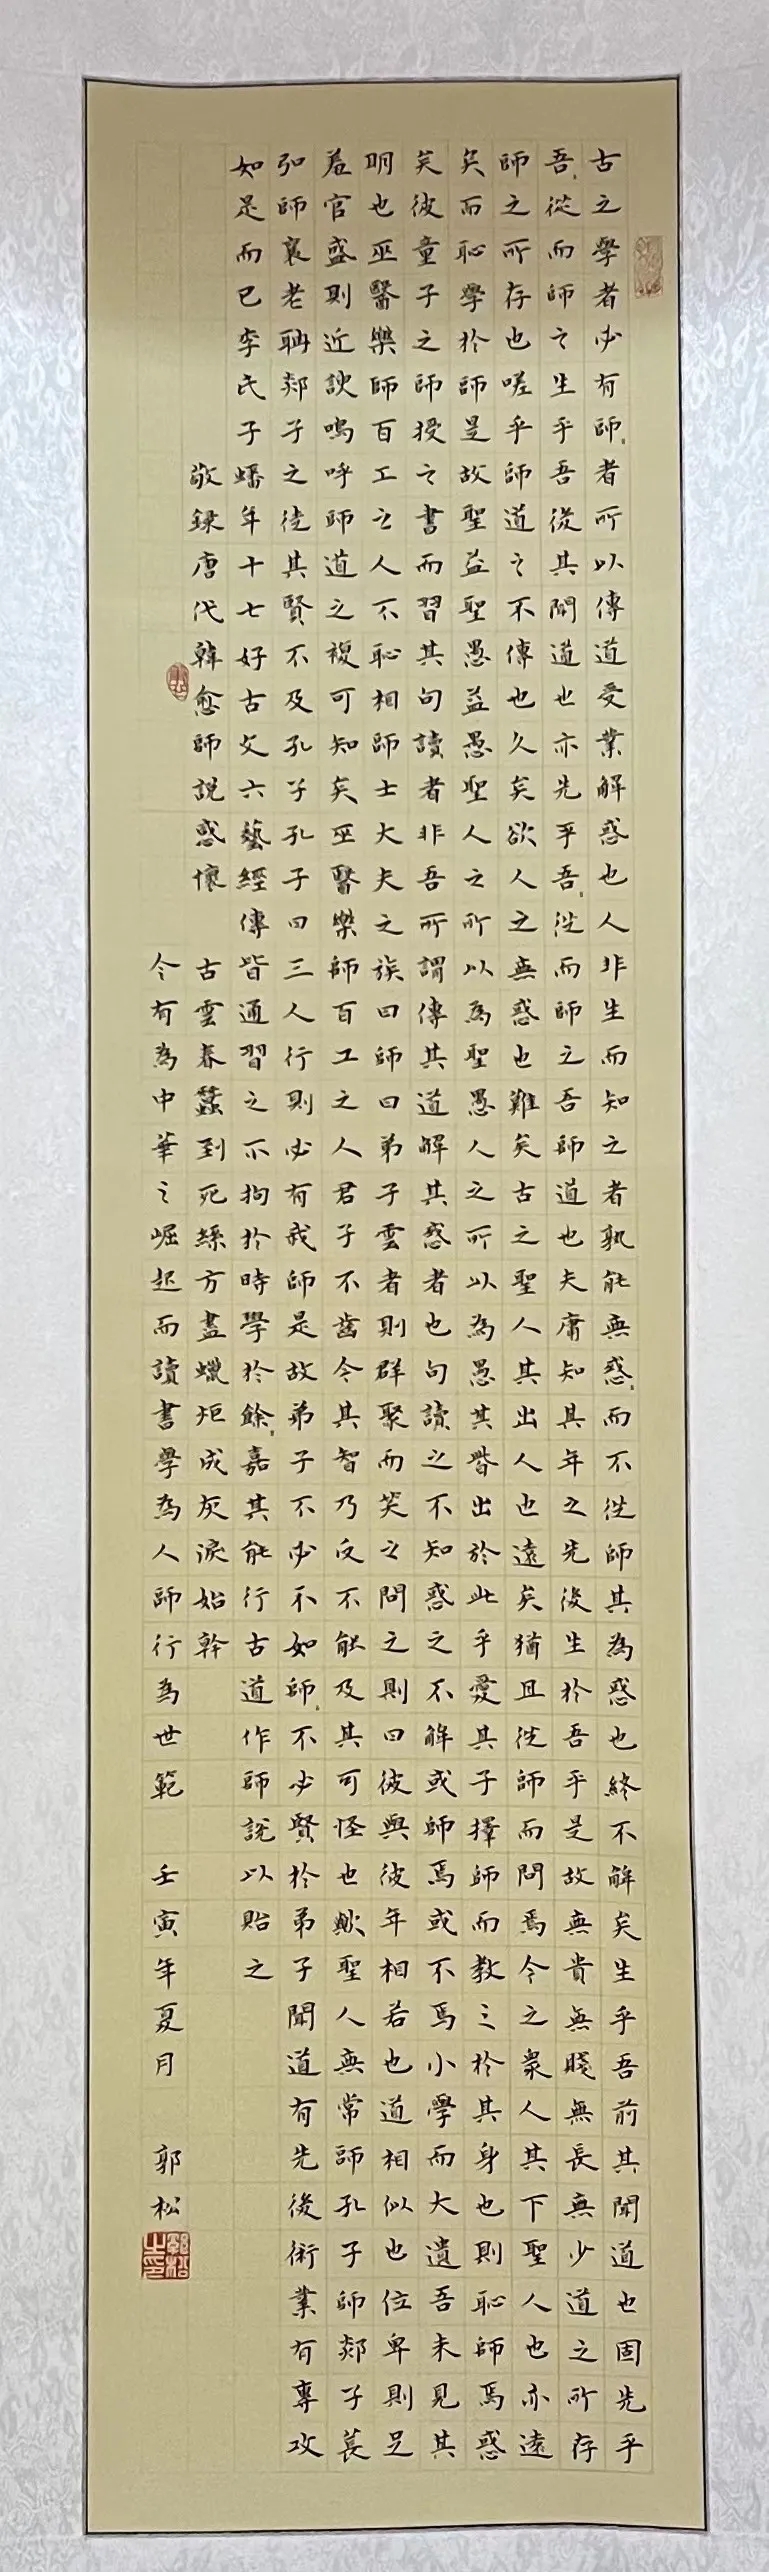 古之學者必有師〻者所以傳道受業解惑也人非生而知之者孰能無惑〻而不從師其為惑也終不解矣生乎吾前其聞道也固先乎
吾〻從而師之生乎吾後其聞道也亦先乎吾〻從而師之吾師道也夫庸知其年之先後生於吾乎是故無貴無賤無長無少道之所存
師之所存也嗟乎師道之不傳也久矣欲人之無惑也難矣古之聖人其出人也遠矣猶且從師而問焉今之衆人其下聖人也亦遠
矣而恥學於師是故聖益聖愚益愚聖人之所以為聖愚人之所以為愚其皆出於此乎愛其子擇師而教之於其身也則恥師焉惑
矣彼童子之師授之書而習其句讀者非吾所謂傳其道解其惑者也句讀之不知惑之不解或師焉或不焉小學而大遺吾未見其
明也巫醫樂師百工之人不恥相師士大夫之族曰師曰弟子雲者則群聚而笑之問之則曰彼與彼年相若也道相似也位卑則足
羞官盛則近諛嗚呼師道之複可知矣巫醫樂師百工之人君子不齒今其智乃反不能及其可怪也歟聖人無常師孔子師郯子萇
弘師襄老聃郯子之徒其賢不及孔子孔子曰三人行則必有我師是故弟子不必不如師〻不必賢於弟子聞道有先後術業有專攻
如是而已李氏子蟠年十七好古文六藝經傳皆通習之不拘於時學於餘〻嘉其能行古道作師說以貽之
敬録唐代韓愈師説感懷 古雲春蠶到死絲方盡蠟炬成灰淚始幹
今有為中華之崛起而讀書學為人師行為世範 壬寅年夏月 郭松
郭松之印